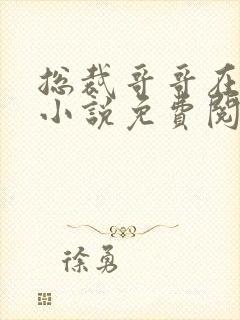 总裁哥哥在
小说免费阅
徐勇